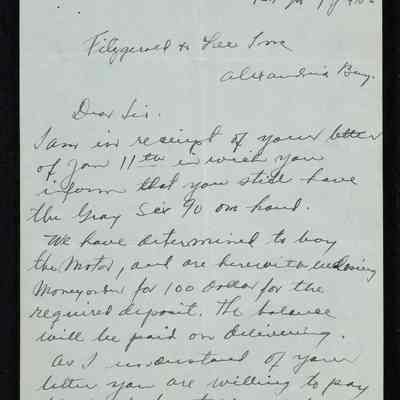 Fitzgerald & Lee Inc
Alexandria Bay.
Dear Sir.
I am in receipt of your letter
of Jan 11th in wich you
inform that you still have
the Gray Six 90 on hand.
We have determined to buy
the Motor, and are herewith inclosing
Moneyorder for 100 Dollar for the
required deposit. The balance
will be paid on delivering.
As I understand of your
letter you are willing to pay